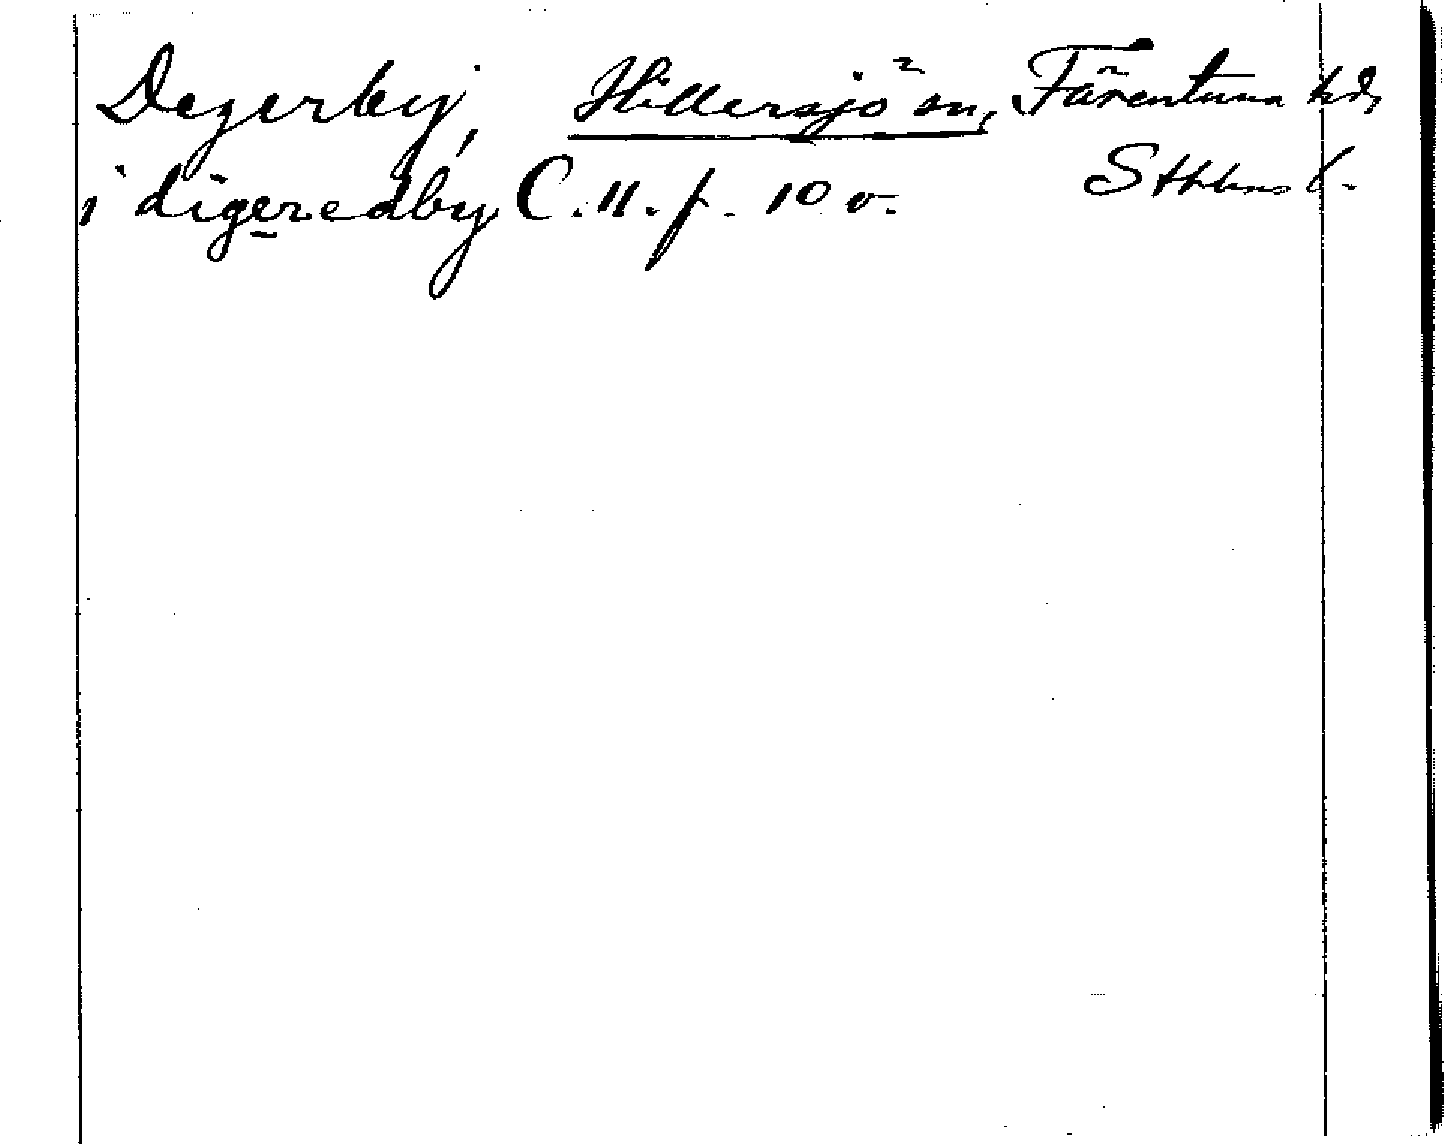 Degerby, Hillersjö sn, Färentuna hd,
Sthlms l.
i digeredby C. 11. f. 10 v.